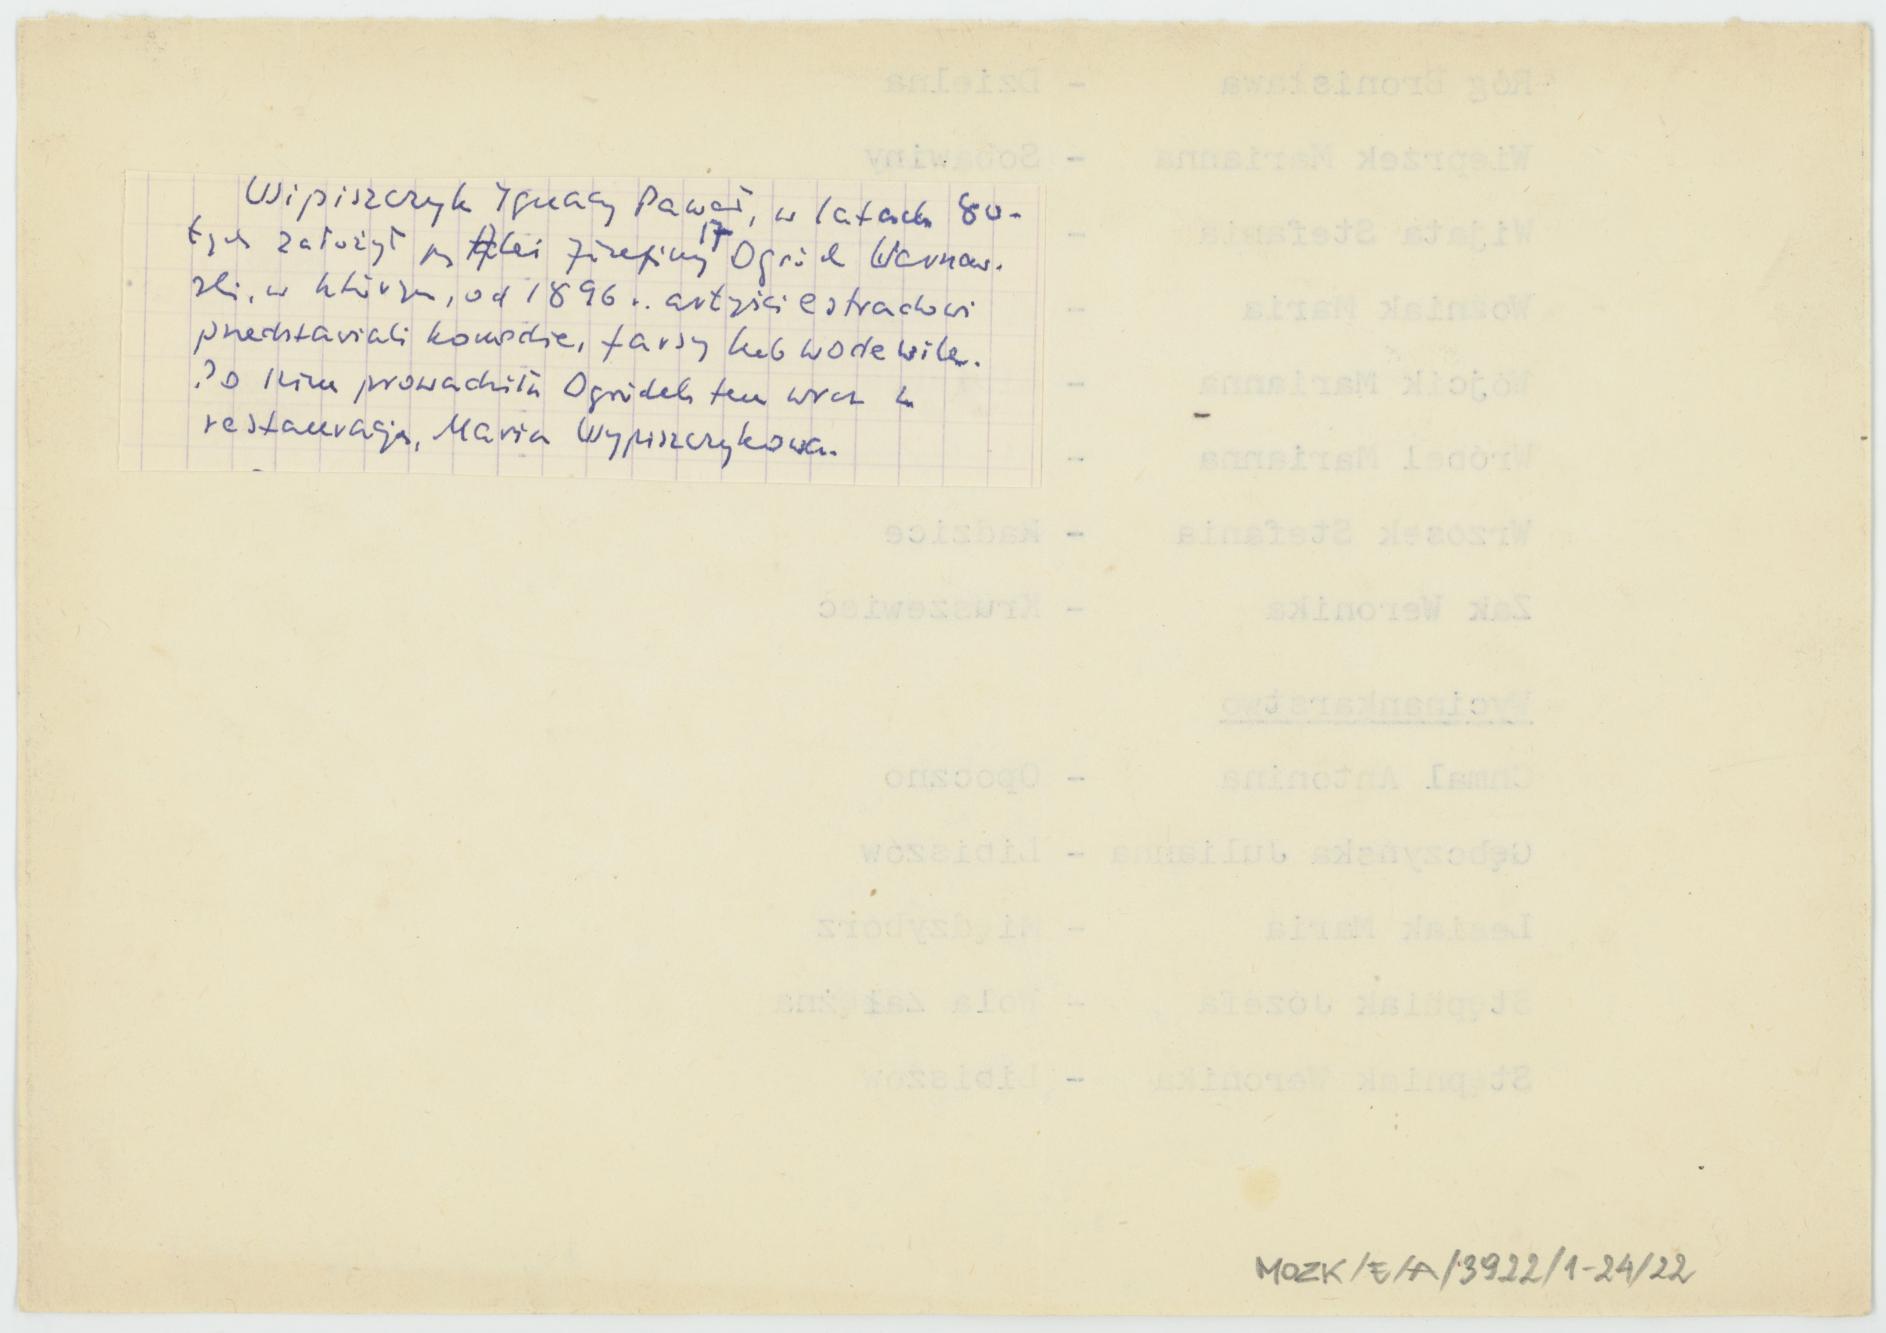 Wipiszczyk Ignacy Paweł, w latach 80-
tych założył przy Alei Józefiny 17 Ogród Warszaw.
ski, w którym, od 1896 r. artyści estradowi
przedstawiali komedie, farsy lub wodewile.
Po nim prowadziła Ogródek ten wraz z
restauracją, Maria Wypiszczykowa.
Róg Bronisława - Dzielna
Wieprzek Marianna - Sobawiny
Wijata Stefania -
Woźniak Maria -
Wójcik Marianna -
Wróbel Marianna -
Wrzosek Stefania - Radzice
Żak Weronika - Kruszewiec
Wycinankarstwo
Chmal Antonina - Opoczno
Gębczyńska Julianna - Libiszów
Lesiak Maria - Międzybórz
Stępniak Józefa - Wola Załężna
Stępniak Weronika - Libiszów
MOZK/E/A/3922/1-24/22